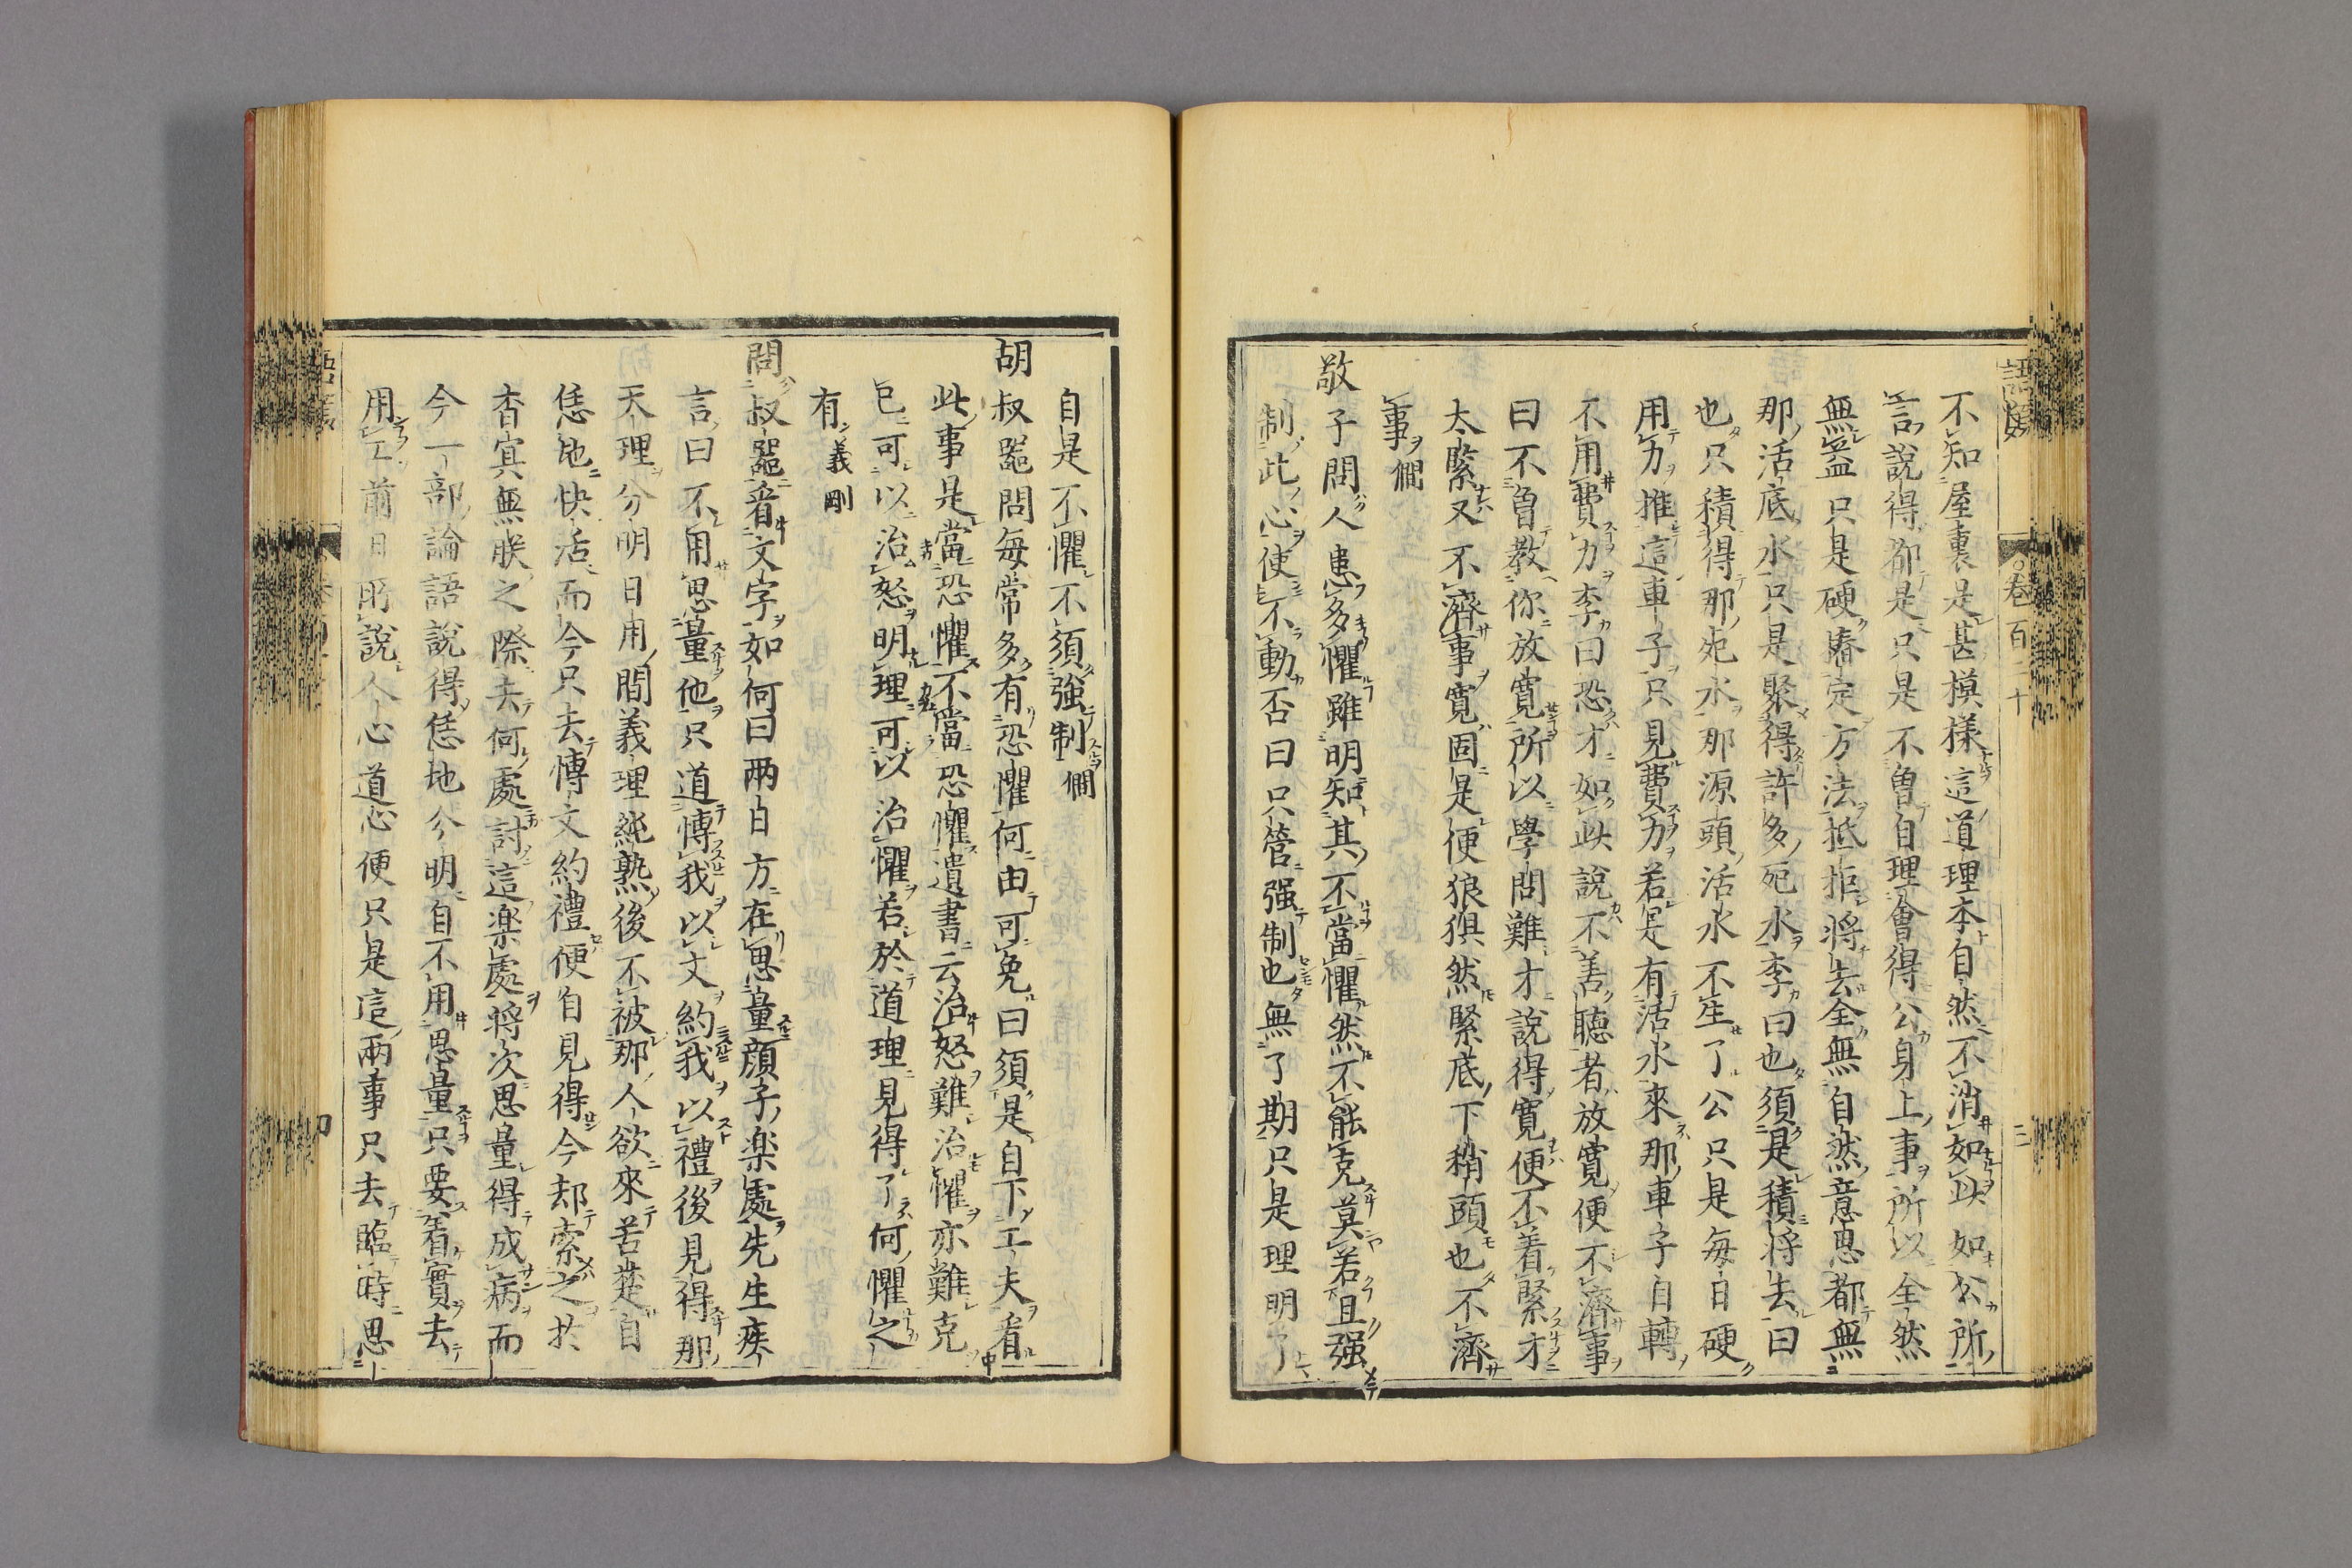 語類
卷百二十
二
不知屋裏是甚模樣這道理本自然不消如此如公所
言說得都是只是不曾自理會得公身上事所以全然
無益只是硬樁定方法抵拒將去全無自然意思都無
那活底水只是聚得許多死水李曰也須是積將去曰
也只積得那死水那源頭活水不生了公只是每日硬
用力推這車子只見費力若是有活水來那車子自轉
不用費力李曰恐才如此說不善聽者放寬便不濟事
曰不曾教你放寬所以學問難才說得寬便不着緊才
太緊又不濟事寬固是便狼狽然緊底下稍頭也不濟
事僴
敬子問人患多懼雖明知其不當懼然不能克莫若且强
制此心使不動否曰只管强制也無了期只是理明了
自是不懼不須强制僴
胡叔器問每常多有恐懼何由可免曰須是自下工夫看
此事是當恐懼不當恐懼遺書云治怒難治懼亦難克
己可以治怒明理可以治懼若於道理見得了何懼之
有義剛
問叔器看文字如何曰兩日方在思量顔子楽處先生疾
言曰不用思量他只道博我以文約我以禮後見得那
天理分明日用間義理純熟後不被那人欲來苦楚自
恁地快活而今只去博文約禮便自見得今却索之於
杳冥無朕之際去何處討這楽處將次思量得成病而
今一部論語說得恁地分明自不用思量只要着實去
用工前日所說人心道心便只是這兩事只去臨時思